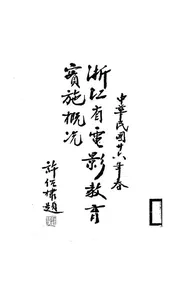 中華民國廿六年春
浙江省電影教育
實施概況
許紹棣題